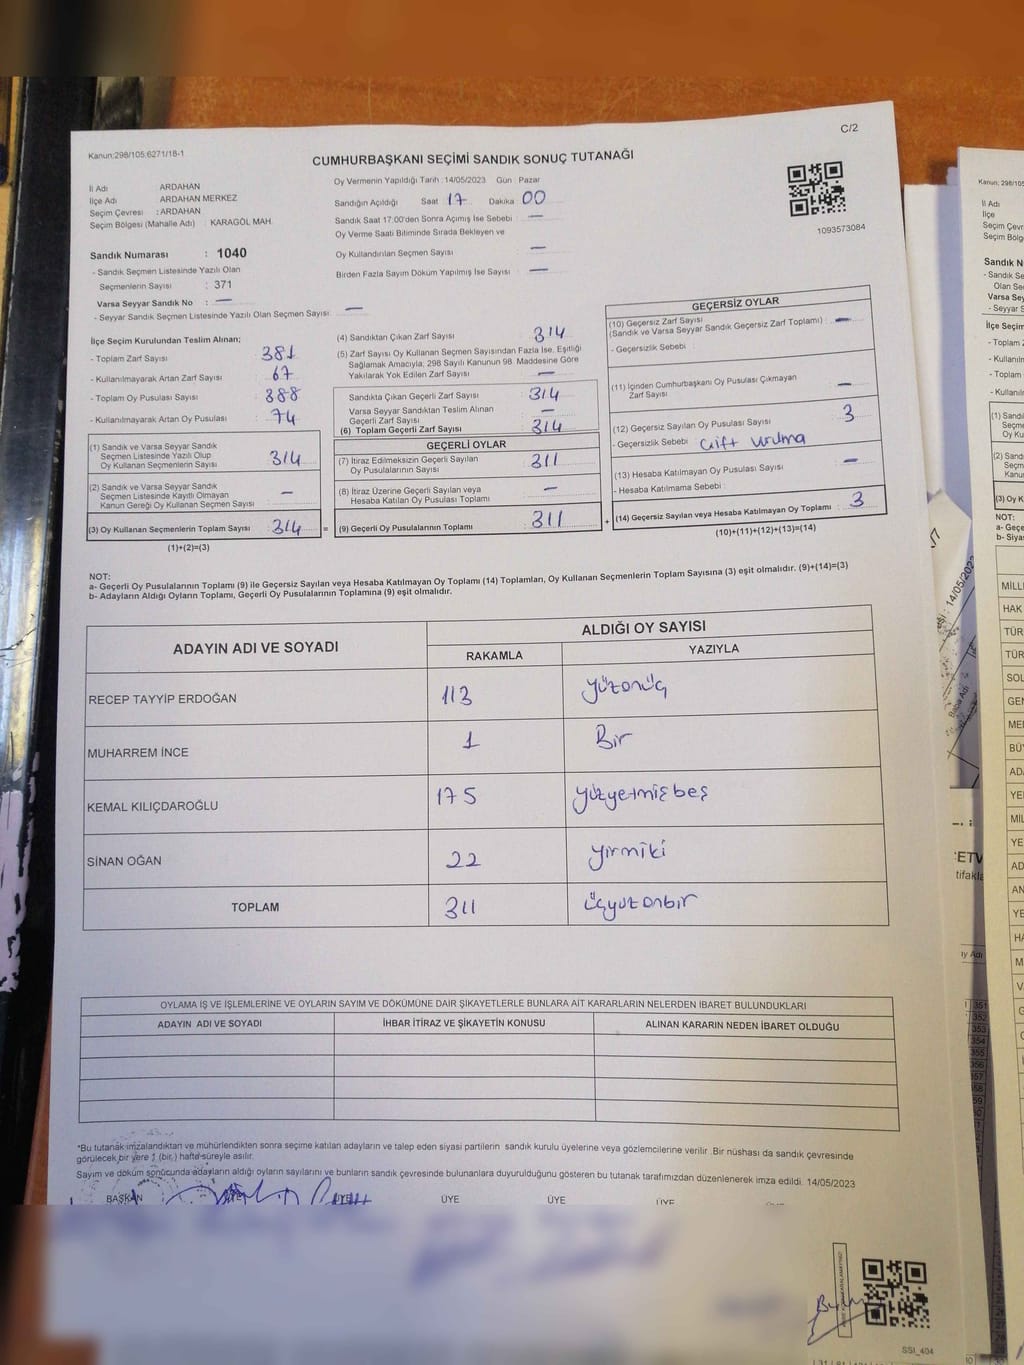 C/2
Kanun:298/105;6271/18-1
CUMHURBAŞKANI SEÇİMİ SANDIK SONUÇ TUTANAĞI
İl Adı ARDAHAN
İlçe Adı ARDAHAN MERKEZ
Seçim Çevresi : ARDAHAN
Seçim Bölgesi (Mahalle Adı) : KARAGÖL MAH.
Oy Vermenin Yapıldığı Tarih : 14/05/2023 Gün : Pazar
Sandığın Açıldığı Saat 17 Dakika 00
Sandık Saat 17:00'den Sonra Açımış İse Sebebi : —
Oy Verme Saati Bitiminde Sırada Bekleyen ve
Oy Kullandırılan Seçmen Sayısı —
Birden Fazla Sayım Döküm Yapılmış İse Sayısı : —
1093573084
Sandık Numarası : 1040
- Sandık Seçmen Listesinde Yazılı Olan
Seçmenlerin Sayısı : 371
Varsa Seyyar Sandık No : —
- Seyyar Sandık Seçmen Listesinde Yazılı Olan Seçmen Sayısı : —
İlçe Seçim Kurulundan Teslim Alınan;
- Toplam Zarf Sayısı : 381
- Kullanılmayarak Artan Zarf Sayısı : 67
- Toplam Oy Pusulası Sayısı : 388
- Kullanılmayarak Artan Oy Pusulası : 74
(1) Sandık ve Varsa Seyyar Sandık
Seçmen Listesinde Yazılı Olup
Oy Kullanan Seçmenlerin Sayısı : 314
(2) Sandık ve Varsa Seyyar Sandık
Seçmen Listesinde Kayıtlı Olmayan
Kanun Gereği Oy Kullanan Seçmen Sayısı : —
(3) Oy Kullanan Seçmenlerin Toplam Sayısı : 314 =
(1)+(2)=(3)
(4) Sandıktan Çıkan Zarf Sayısı : 314
(5) Zarf Sayısı Oy Kullanan Seçmen Sayısından Fazla İse, Eşitliği
Sağlamak Amacıyla; 298 Sayılı Kanunun 98. Maddesine Göre
Yakılarak Yok Edilen Zarf Sayısı : —
Sandıkta Çıkan Geçerli Zarf Sayısı : 314
Varsa Seyyar Sandıktan Teslim Alınan
Geçerli Zarf Sayısı : —
(6) Toplam Geçerli Zarf Sayısı : 314
GEÇERLİ OYLAR
(7) İtiraz Edilmeksizin Geçerli Sayılan
Oy Pusulalarının Sayısı : 311
(8) İtiraz Üzerine Geçerli Sayılan veya
Hesaba Katılan Oy Pusulası Toplamı : —
(9) Geçerli Oy Pusulalarının Toplamı : 311 +
GEÇERSİZ OYLAR
(10) Geçersiz Zarf Sayısı
(Sandık ve Varsa Seyyar Sandık Geçersiz Zarf Toplamı) : —
- Geçersizlik Sebebi :
(11) İçinden Cumhurbaşkanı Oy Pusulası Çıkmayan
Zarf Sayısı : —
(12) Geçersiz Sayılan Oy Pusulası Sayısı : 3
- Geçersizlik Sebebi : Çift Vurma
(13) Hesaba Katılmayan Oy Pusulası Sayısı : —
- Hesaba Katılmama Sebebi :
(14) Geçersiz Sayılan veya Hesaba Katılmayan Oy Toplamı : 3
(10)+(11)+(12)+(13)=(14)
NOT:
a- Geçerli Oy Pusulalarının Toplamı (9) ile Geçersiz Sayılan veya Hesaba Katılmayan Oy Toplamı (14) Toplamları, Oy Kullanan Seçmenlerin Toplam Sayısına (3) eşit olmalıdır. (9)+(14)=(3)
b- Adayların Aldığı Oyların Toplamı, Geçerli Oy Pusulalarının Toplamına (9) eşit olmalıdır.
ADAYIN ADI VE SOYADI ALDIĞI OY SAYISI
RAKAMLA YAZIYLA
RECEP TAYYİP ERDOĞAN 113 yüzonüç
MUHARREM İNCE 1 Bir
KEMAL KILIÇDAROĞLU 175 yüzyetmişbeş
SİNAN OĞAN 22 yirmiki
TOPLAM 311 üçyüzonbir
OYLAMA İŞ VE İŞLEMLERİNE VE OYLARIN SAYIM VE DÖKÜMÜNE DAİR ŞİKAYETLERLE BUNLARA AİT KARARLARIN NELERDEN İBARET BULUNDUKLARI
ADAYIN ADI VE SOYADI İHBAR İTİRAZ VE ŞİKAYETİN KONUSU ALINAN KARARIN NEDEN İBARET OLDUĞU
*Bu tutanak imzalandıktan ve mühürlendikten sonra seçime katılan adayların ve talep eden siyasi partilerin sandık kurulu üyelerine veya gözlemcilerine verilir. Bir nüshası da sandık çevresinde
görülecek bir yere 1 (bir) hafta süreyle asılır.
Sayım ve döküm sonucunda adayların aldığı oyların sayılarını ve bunların sandık çevresinde bulunanlara duyurulduğunu gösteren bu tutanak tarafımızdan düzenlenerek imza edildi. 14/05/2023
BAŞKAN ÜYE ÜYE ÜYE ÜYE ÜYE
SSI_404